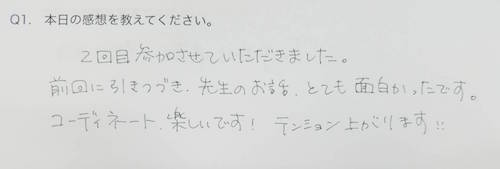 Q1. 本日の感想を教えてください。
2回目参加させていただきました。
前回に引きつづき、先生のお話、とても面白かったです。
コーディネート、楽しいです! テンション上がります!!